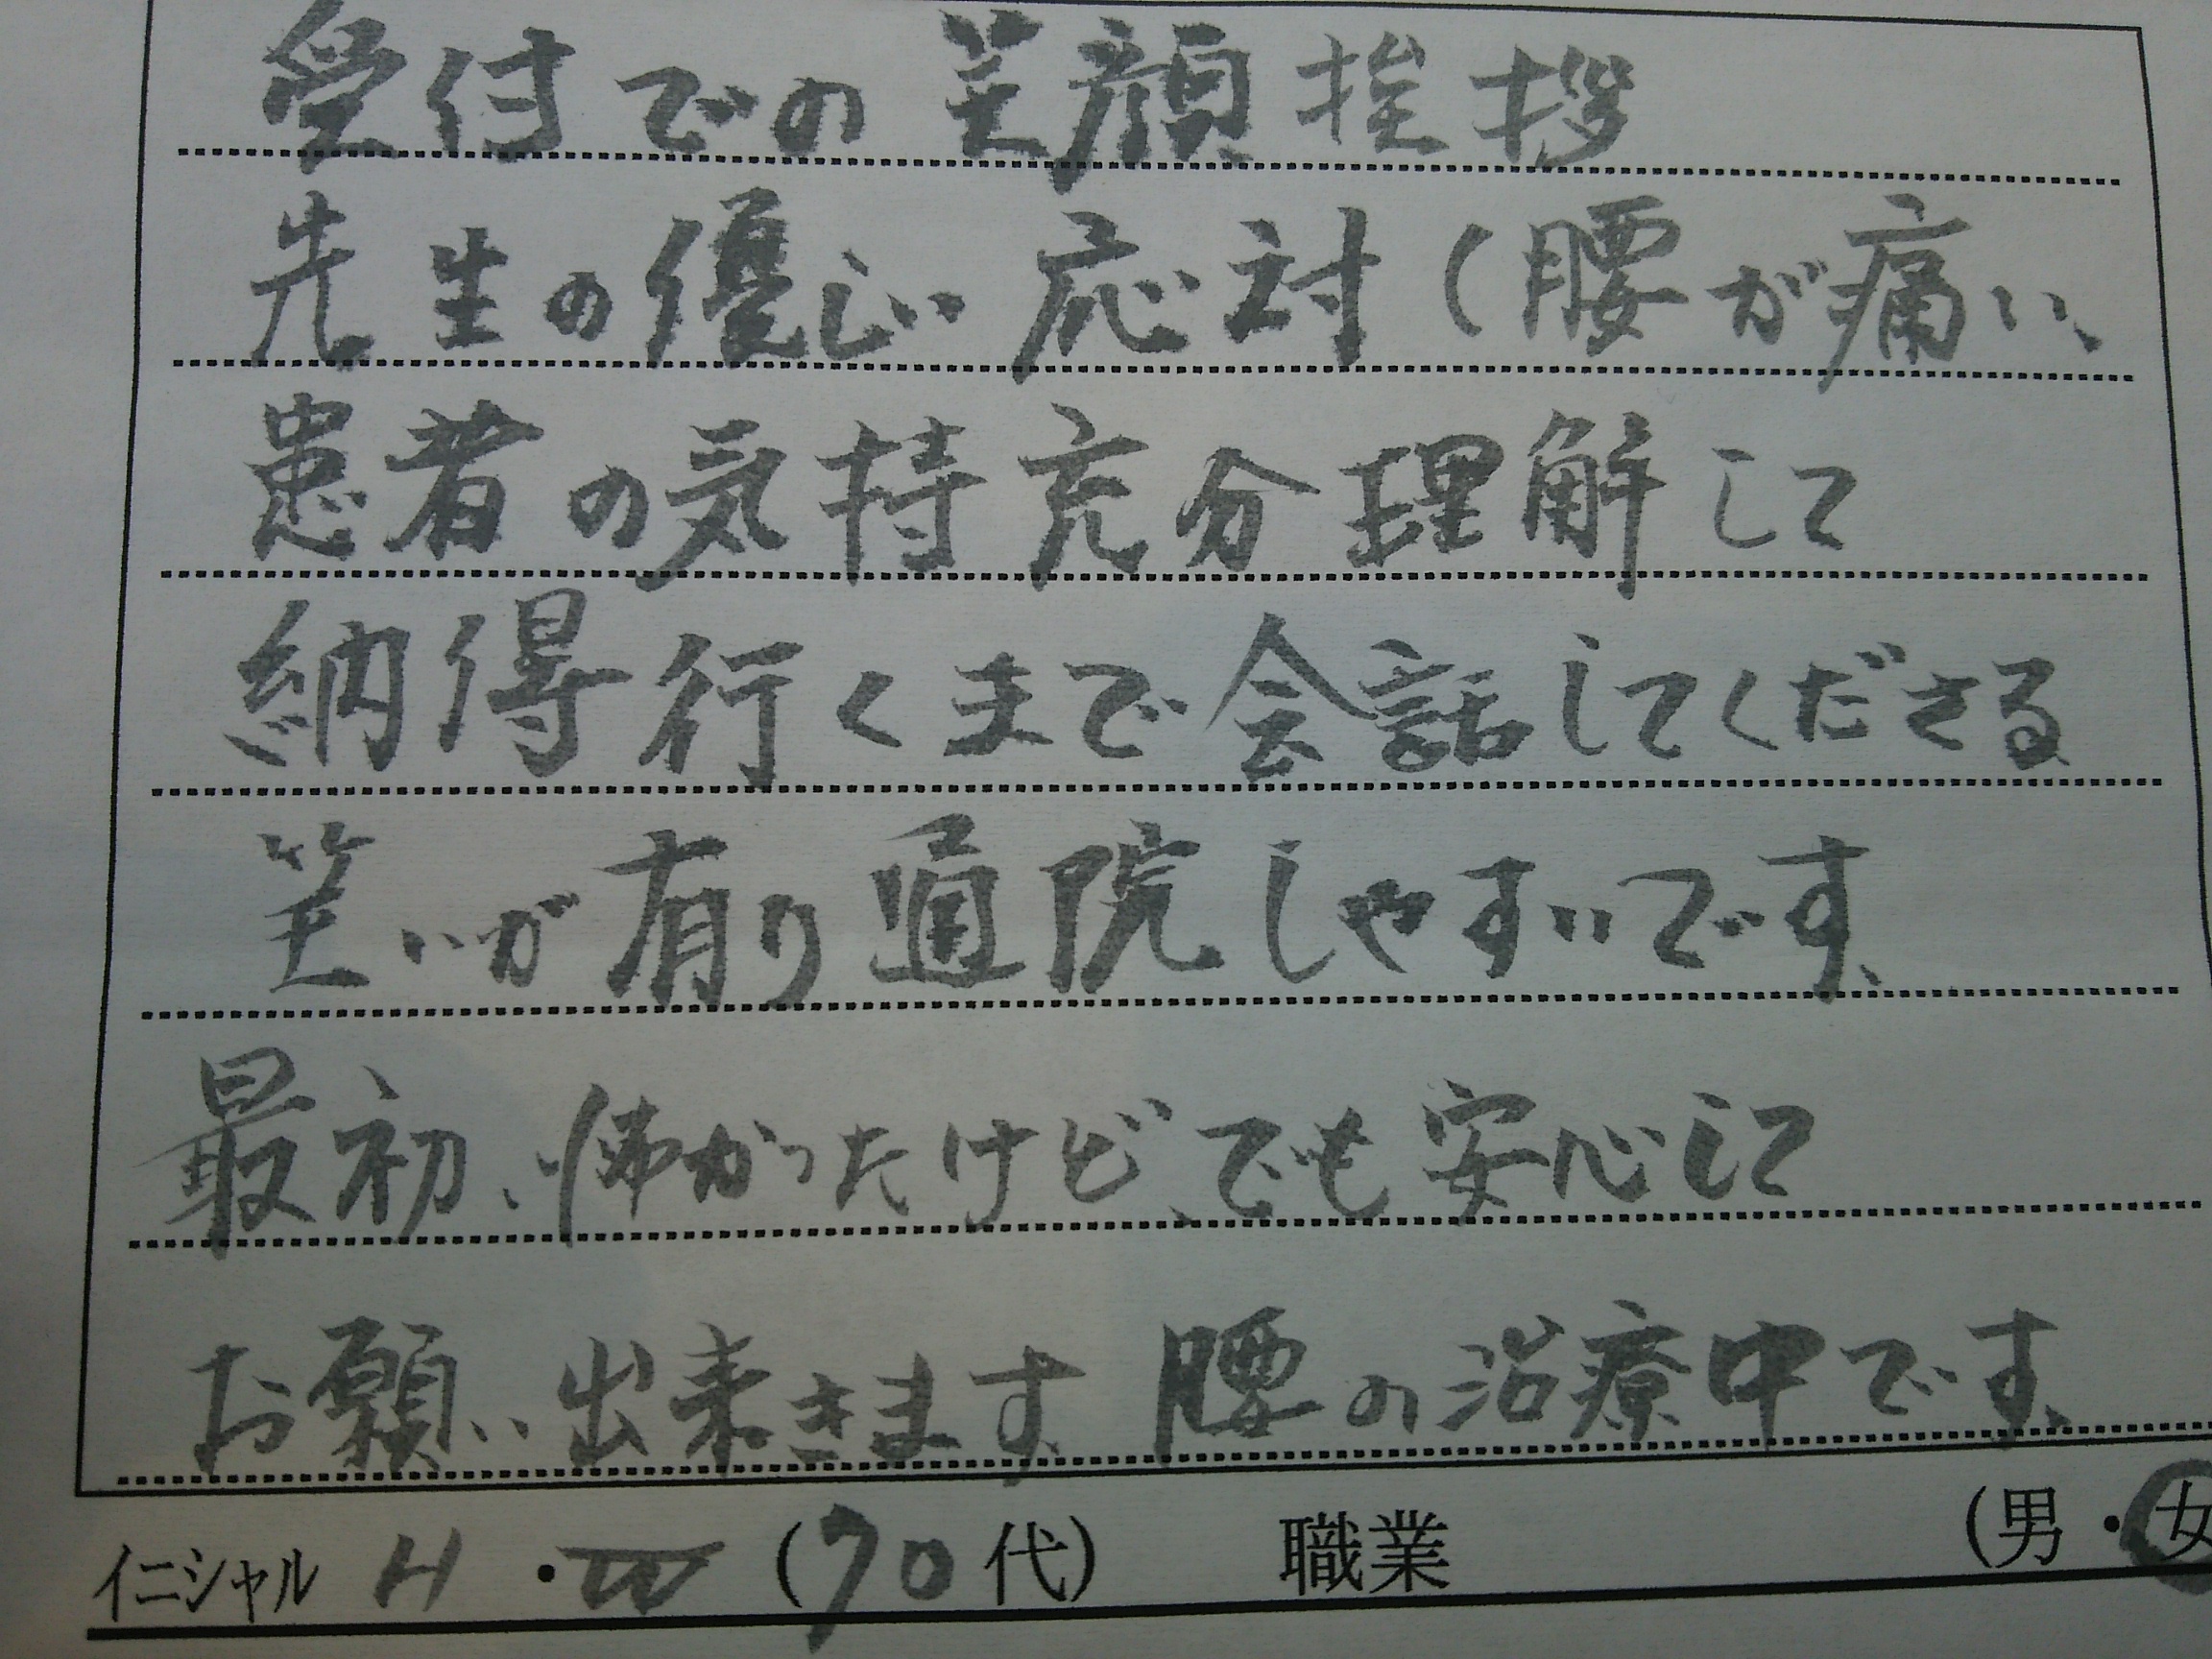 受付での笑顔挨拶
先生の優しい応対(腰が痛い、
患者の気持充分理解して
納得行くまで会話してくださる
笑いが有り通院しやすいです、
最初、怖かったけど、でも安心して
お願い出来きます、腰の治療中です、
イニシャル H・W (70代) 職業 (男・女